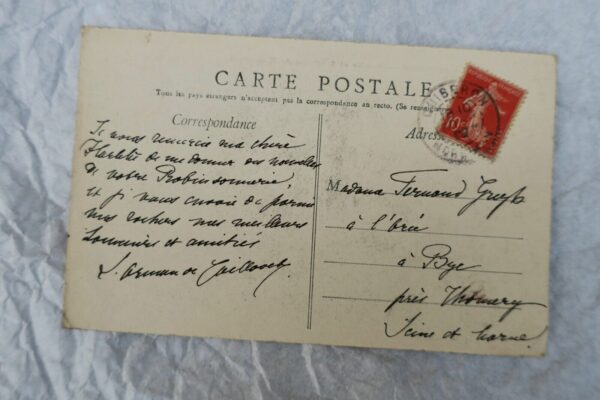 CARTE POSTALE
Tous les pays étrangers n'acceptent pas la correspondance au recto. (Se renseigner
Correspondance
Adres
Je vous remercie ma chère
de me donner des nouvelles
de votre Robinsonnerie,
et je vous envoie de parmi
mes rochers mes meilleurs
souvenirs et amitiés
L. Arman de Caillavet
Madame Fernand Gregh
à l'
à Bye
près Thomery
Seine et Marne
10